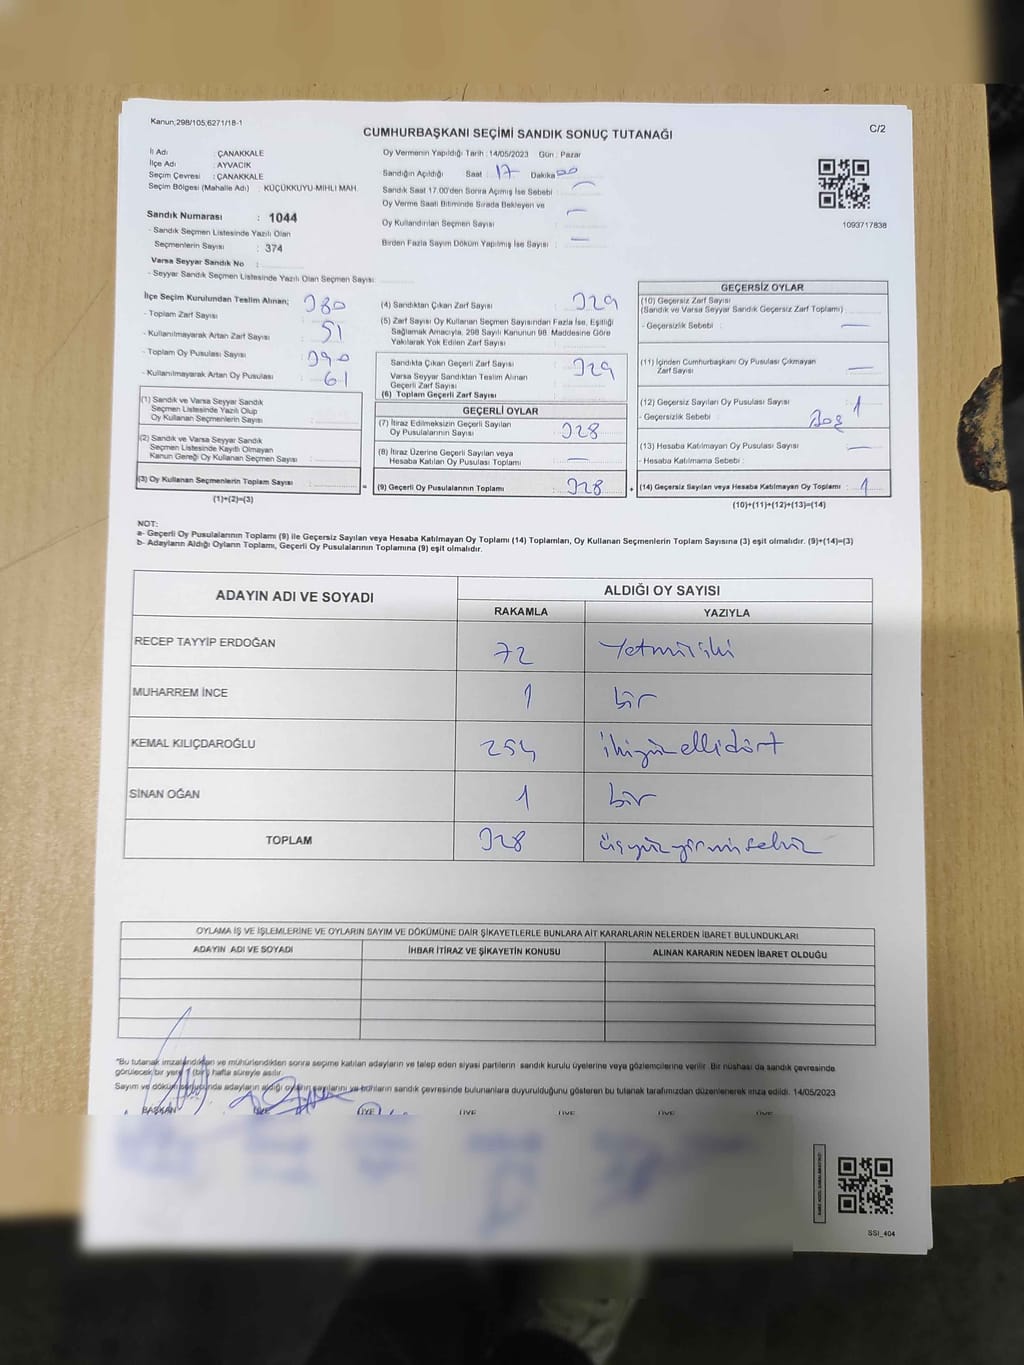 Kanun,298/105,6271/18-1
CUMHURBAŞKANI SEÇİMİ SANDIK SONUÇ TUTANAĞI
C/2
İl Adı : ÇANAKKALE
İlçe Adı : AYVACIK
Seçim Çevresi : ÇANAKKALE
Seçim Bölgesi (Mahalle Adı) : KÜÇÜKKUYU-MIHLI MAH.
Sandık Numarası : 1044
- Sandık Seçmen Listesinde Yazılı Olan
Seçmenlerin Sayısı : 374
Varsa Seyyar Sandık No :
- Seyyar Sandık Seçmen Listesinde Yazılı Olan Seçmen Sayısı:
Oy Vermenin Yapıldığı Tarih : 14/05/2023 Gün : Pazar
Sandığın Açıldığı Saat : 17 Dakika 00
Sandık Saat 17.00'den Sonra Açımış İse Sebebi :
Oy Verme Saati Bitiminde Sırada Bekleyen ve
Oy Kullandırılan Seçmen Sayısı :
Birden Fazla Sayım Döküm Yapılmış İse Sayısı :
1093717838
İlçe Seçim Kurulundan Teslim Alınan;
- Toplam Zarf Sayısı : 380
- Kullanılmayarak Artan Zarf Sayısı : 51
- Toplam Oy Pusulası Sayısı : 390
- Kullanılmayarak Artan Oy Pusulası : 61
(1) Sandık ve Varsa Seyyar Sandık
Seçmen Listesinde Yazılı Olup
Oy Kullanan Seçmenlerin Sayısı :
(2) Sandık ve Varsa Seyyar Sandık
Seçmen Listesinde Kayıtlı Olmayan
Kanun Gereği Oy Kullanan Seçmen Sayısı :
(3) Oy Kullanan Seçmenlerin Toplam Sayısı :
(1)+(2)=(3)
(4) Sandıktan Çıkan Zarf Sayısı : 329
(5) Zarf Sayısı Oy Kullanan Seçmen Sayısından Fazla İse, Eşitliği
Sağlamak Amacıyla, 298 Sayılı Kanunun 98. Maddesine Göre
Yakılarak Yok Edilen Zarf Sayısı :
Sandıkta Çıkan Geçerli Zarf Sayısı : 329
Varsa Seyyar Sandıktan Teslim Alınan
Geçerli Zarf Sayısı :
(6) Toplam Geçerli Zarf Sayısı :
GEÇERLİ OYLAR
(7) İtiraz Edilmeksizin Geçerli Sayılan
Oy Pusulalarının Sayısı : 328
(8) İtiraz Üzerine Geçerli Sayılan veya
Hesaba Katılan Oy Pusulası Toplamı :
(9) Geçerli Oy Pusulalarının Toplamı : 328
GEÇERSİZ OYLAR
(10) Geçersiz Zarf Sayısı
(Sandık ve Varsa Seyyar Sandık Geçersiz Zarf Toplamı) :
- Geçersizlik Sebebi :
(11) İçinden Cumhurbaşkanı Oy Pusulası Çıkmayan
Zarf Sayısı :
(12) Geçersiz Sayılan Oy Pusulası Sayısı : 1
- Geçersizlik Sebebi : Boş
(13) Hesaba Katılmayan Oy Pusulası Sayısı :
- Hesaba Katılmama Sebebi :
(14) Geçersiz Sayılan veya Hesaba Katılmayan Oy Toplamı : 1
(10)+(11)+(12)+(13)=(14)
NOT:
a- Geçerli Oy Pusulalarının Toplamı (9) ile Geçersiz Sayılan veya Hesaba Katılmayan Oy Toplamı (14) Toplamları, Oy Kullanan Seçmenlerin Toplam Sayısına (3) eşit olmalıdır. (9)+(14)=(3)
b- Adayların Aldığı Oyların Toplamı, Geçerli Oy Pusulalarının Toplamına (9) eşit olmalıdır.
ADAYIN ADI VE SOYADI
ALDIĞI OY SAYISI
RAKAMLA YAZIYLA
RECEP TAYYİP ERDOĞAN 72 Yetmişiki
MUHARREM İNCE 1 bir
KEMAL KILIÇDAROĞLU 254 ikiyüzellidört
SİNAN OĞAN 1 bir
TOPLAM 328 üçyüzyirmisekiz
OYLAMA İŞ VE İŞLEMLERİNE VE OYLARIN SAYIM VE DÖKÜMÜNE DAİR ŞİKAYETLERLE BUNLARA AİT KARARLARIN NELERDEN İBARET BULUNDUKLARI
ADAYIN ADI VE SOYADI İHBAR İTİRAZ VE ŞİKAYETİN KONUSU ALINAN KARARIN NEDEN İBARET OLDUĞU
"Bu tutanak imzalandıktan ve mühürlendikten sonra seçime katılan adayların ve talep eden siyasi partilerin sandık kurulu üyelerine veya gözlemcilerine verilir. Bir nüshası da sandık çevresinde
görülecek bir yere 1 (bir) hafta süreyle asılır.
Sayım ve döküm sonucunda adayların aldığı oyların sayılarını ve bunların sandık çevresinde bulunanlara duyurulduğunu gösteren bu tutanak tarafımızdan düzenlenerek imza edildi. 14/05/2023
BAŞKAN ÜYE ÜYE ÜYE ÜYE ÜYE ÜYE
SSI_404